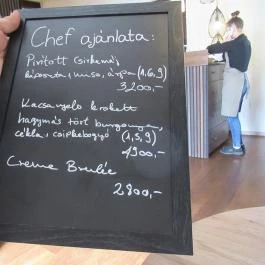 Chef ajánlata:
Pirított csirkemáj,
káposzta, miso, árpa (1,6,9)
3200,-
Kacsazuza krokett
hagymás tört burgonya,
cékla, csipkebogyó (1,3,9)
4900,-
Creme Brulée
2800,-